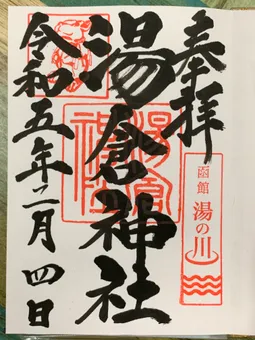 奉拝
函館
湯の川
湯倉神社
湯倉
神社
令和五年二月四日